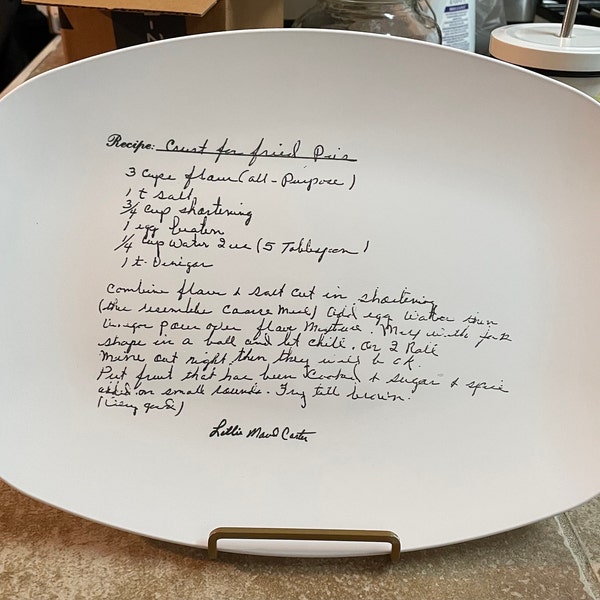 Recipe: Crust for fried Pies
3 cups flour (all-Purpose)
1 t salt
3/4 cup shortening
1 egg beaten
1/4 cup water 2 use (5 Tablespoon)
1 t. Vinegar
Combine flour & salt cut in shortening
(the resemble Coarse Meal) add egg water then
Vinegar pour over flour Mixture. Mix with fork
shape in a ball and let chill. Or I Roll
Mine out right then they will b ok.
Put fruit that has been cooked & sugar & spice
added on small rounds. Fry till brown.
(Very good)
Lettie Maud Carter